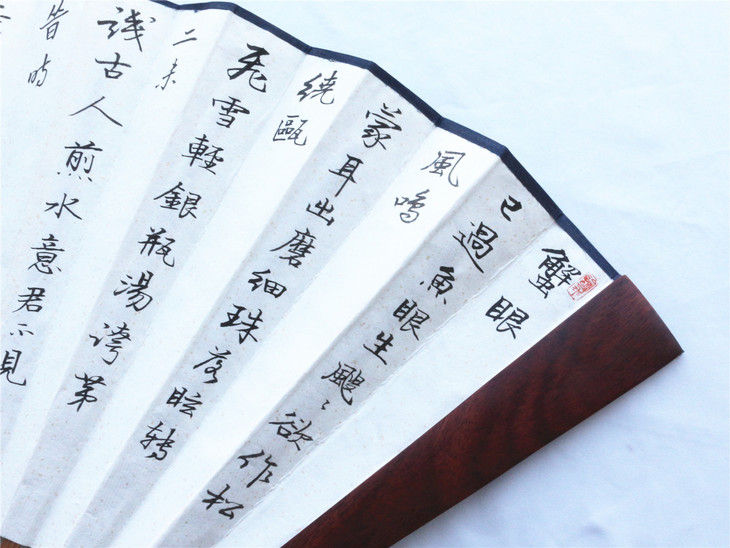 蟹眼
已過魚眼生颼〻欲作松
風鳴
蒙耳出磨細珠落眩轉
繞甌
飛雪輕銀瓶湯誇苐
二未
識古人煎水意君不見
昔時